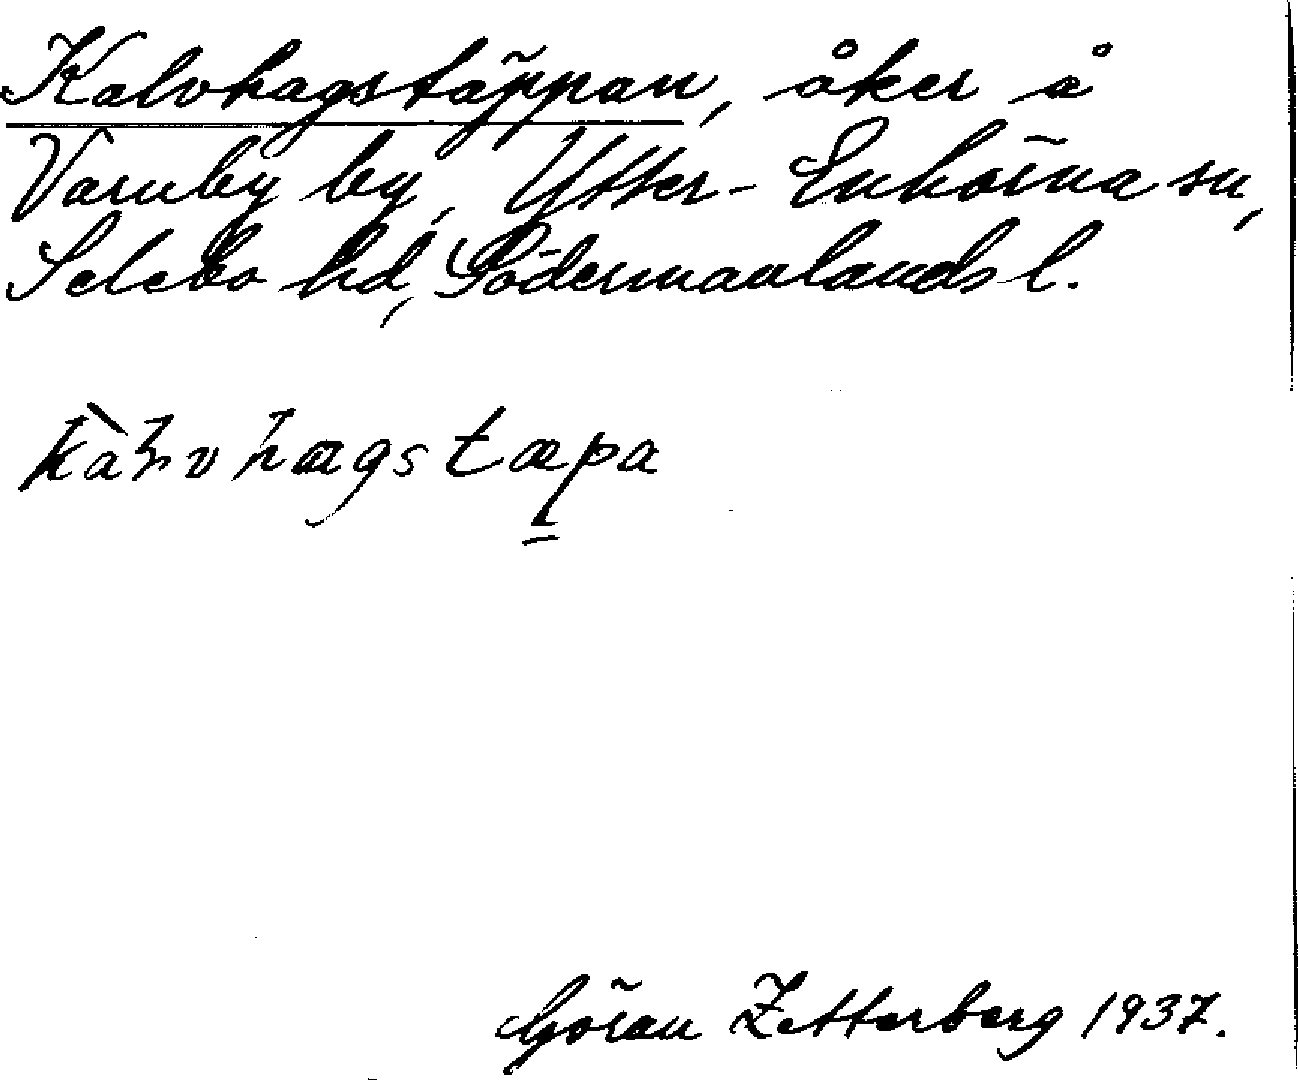 Kalvhagstäppan, åker å
Varuby by, Ytter-Enhörna sn,
Selebo hd, Södermanlands l.
Göran Zetterberg 1937.